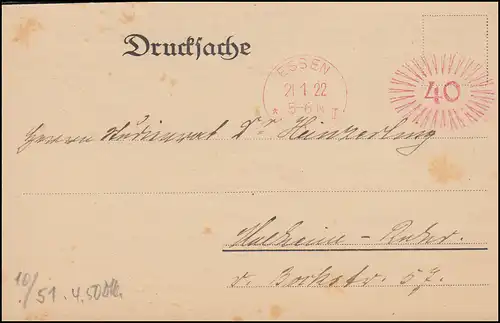 Drucksache
ESSEN
21 1 22
5-6 N
* I
40
Herrn Studienrat Dr. Heinzerling
Mülheim-Ruhr.
v. Bockstr. 57.
10/51. 4.50